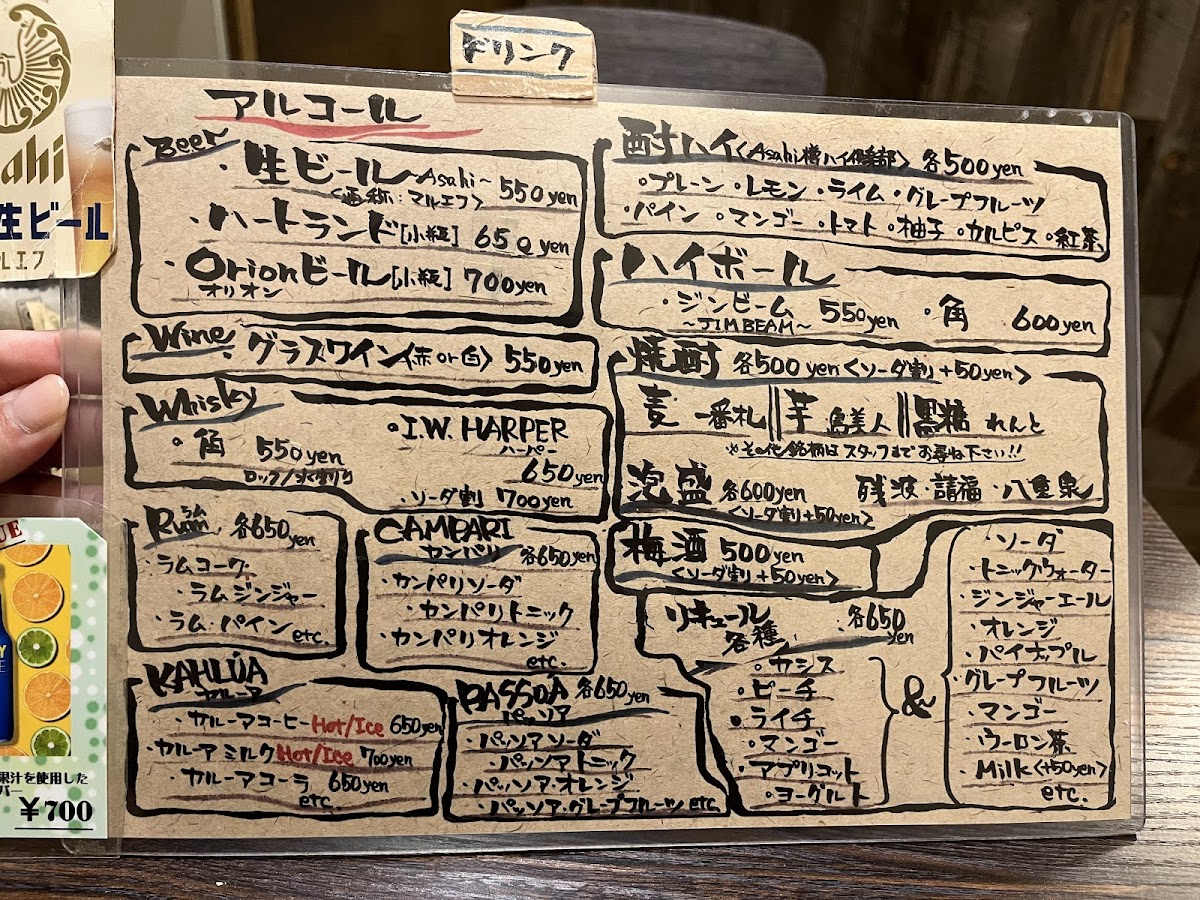 ドリンク
アルコール
Beer
・生ビール ~Asahi~ 550yen
<通称:マルエフ>
・ハートランド[小瓶] 650yen
・Orionビール[小瓶] 700yen
オリオン
Wine
グラスワイン<赤 or 白> 550yen
Whisky
・角 550yen
ロック/水割り
・I.W. HARPER
ハーパー
650yen
・ソーダ割 700yen
Rum 各650yen
ラム
・ラムコーク
・ラムジンジャー
・ラム・パイン etc.
CAMPARI
カンパリ 各650yen
・カンパリソーダ
・カンパリトニック
・カンパリオレンジ
etc.
KAHLÚA
カルーア
・カルーアコーヒー Hot/Ice 650yen
・カルーアミルク Hot/Ice 700yen
・カルーアコーラ 650yen
etc.
PASSOA 各650yen
パッソア
・パッソアソーダ
・パッソアトニック
・パッソア・オレンジ
・パッソア・グレープフルーツ etc
酎ハイ<Asahi樽ハイ倶楽部> 各500yen
・プレーン ・レモン ・ライム ・グレープフルーツ
・パイン ・マンゴー ・トマト ・柚子 ・カルピス ・紅茶
ハイボール
・ジンビーム 550yen ・角 600yen
~JIM BEAM~
焼酎 各500yen <ソーダ割 +50yen>
麦 一番札 || 芋 島美人 || 黒糖 れんと
※その他銘柄はスタッフまでお尋ね下さい!!
泡盛 各600yen 残波・請福・八重泉
<ソーダ割 +50yen>
梅酒 500yen
<ソーダ割 +50yen>
リキュール
各種 各650yen
・カシス
・ピーチ
・ライチ
・マンゴー
・アプリコット
・ヨーグルト
&
・ソーダ
・トニックウォーター
・ジンジャーエール
・オレンジ
・パイナップル
・グレープフルーツ
・マンゴー
・ウーロン茶
・Milk <+50yen>
etc.
生ビール
果汁を使用した
¥700